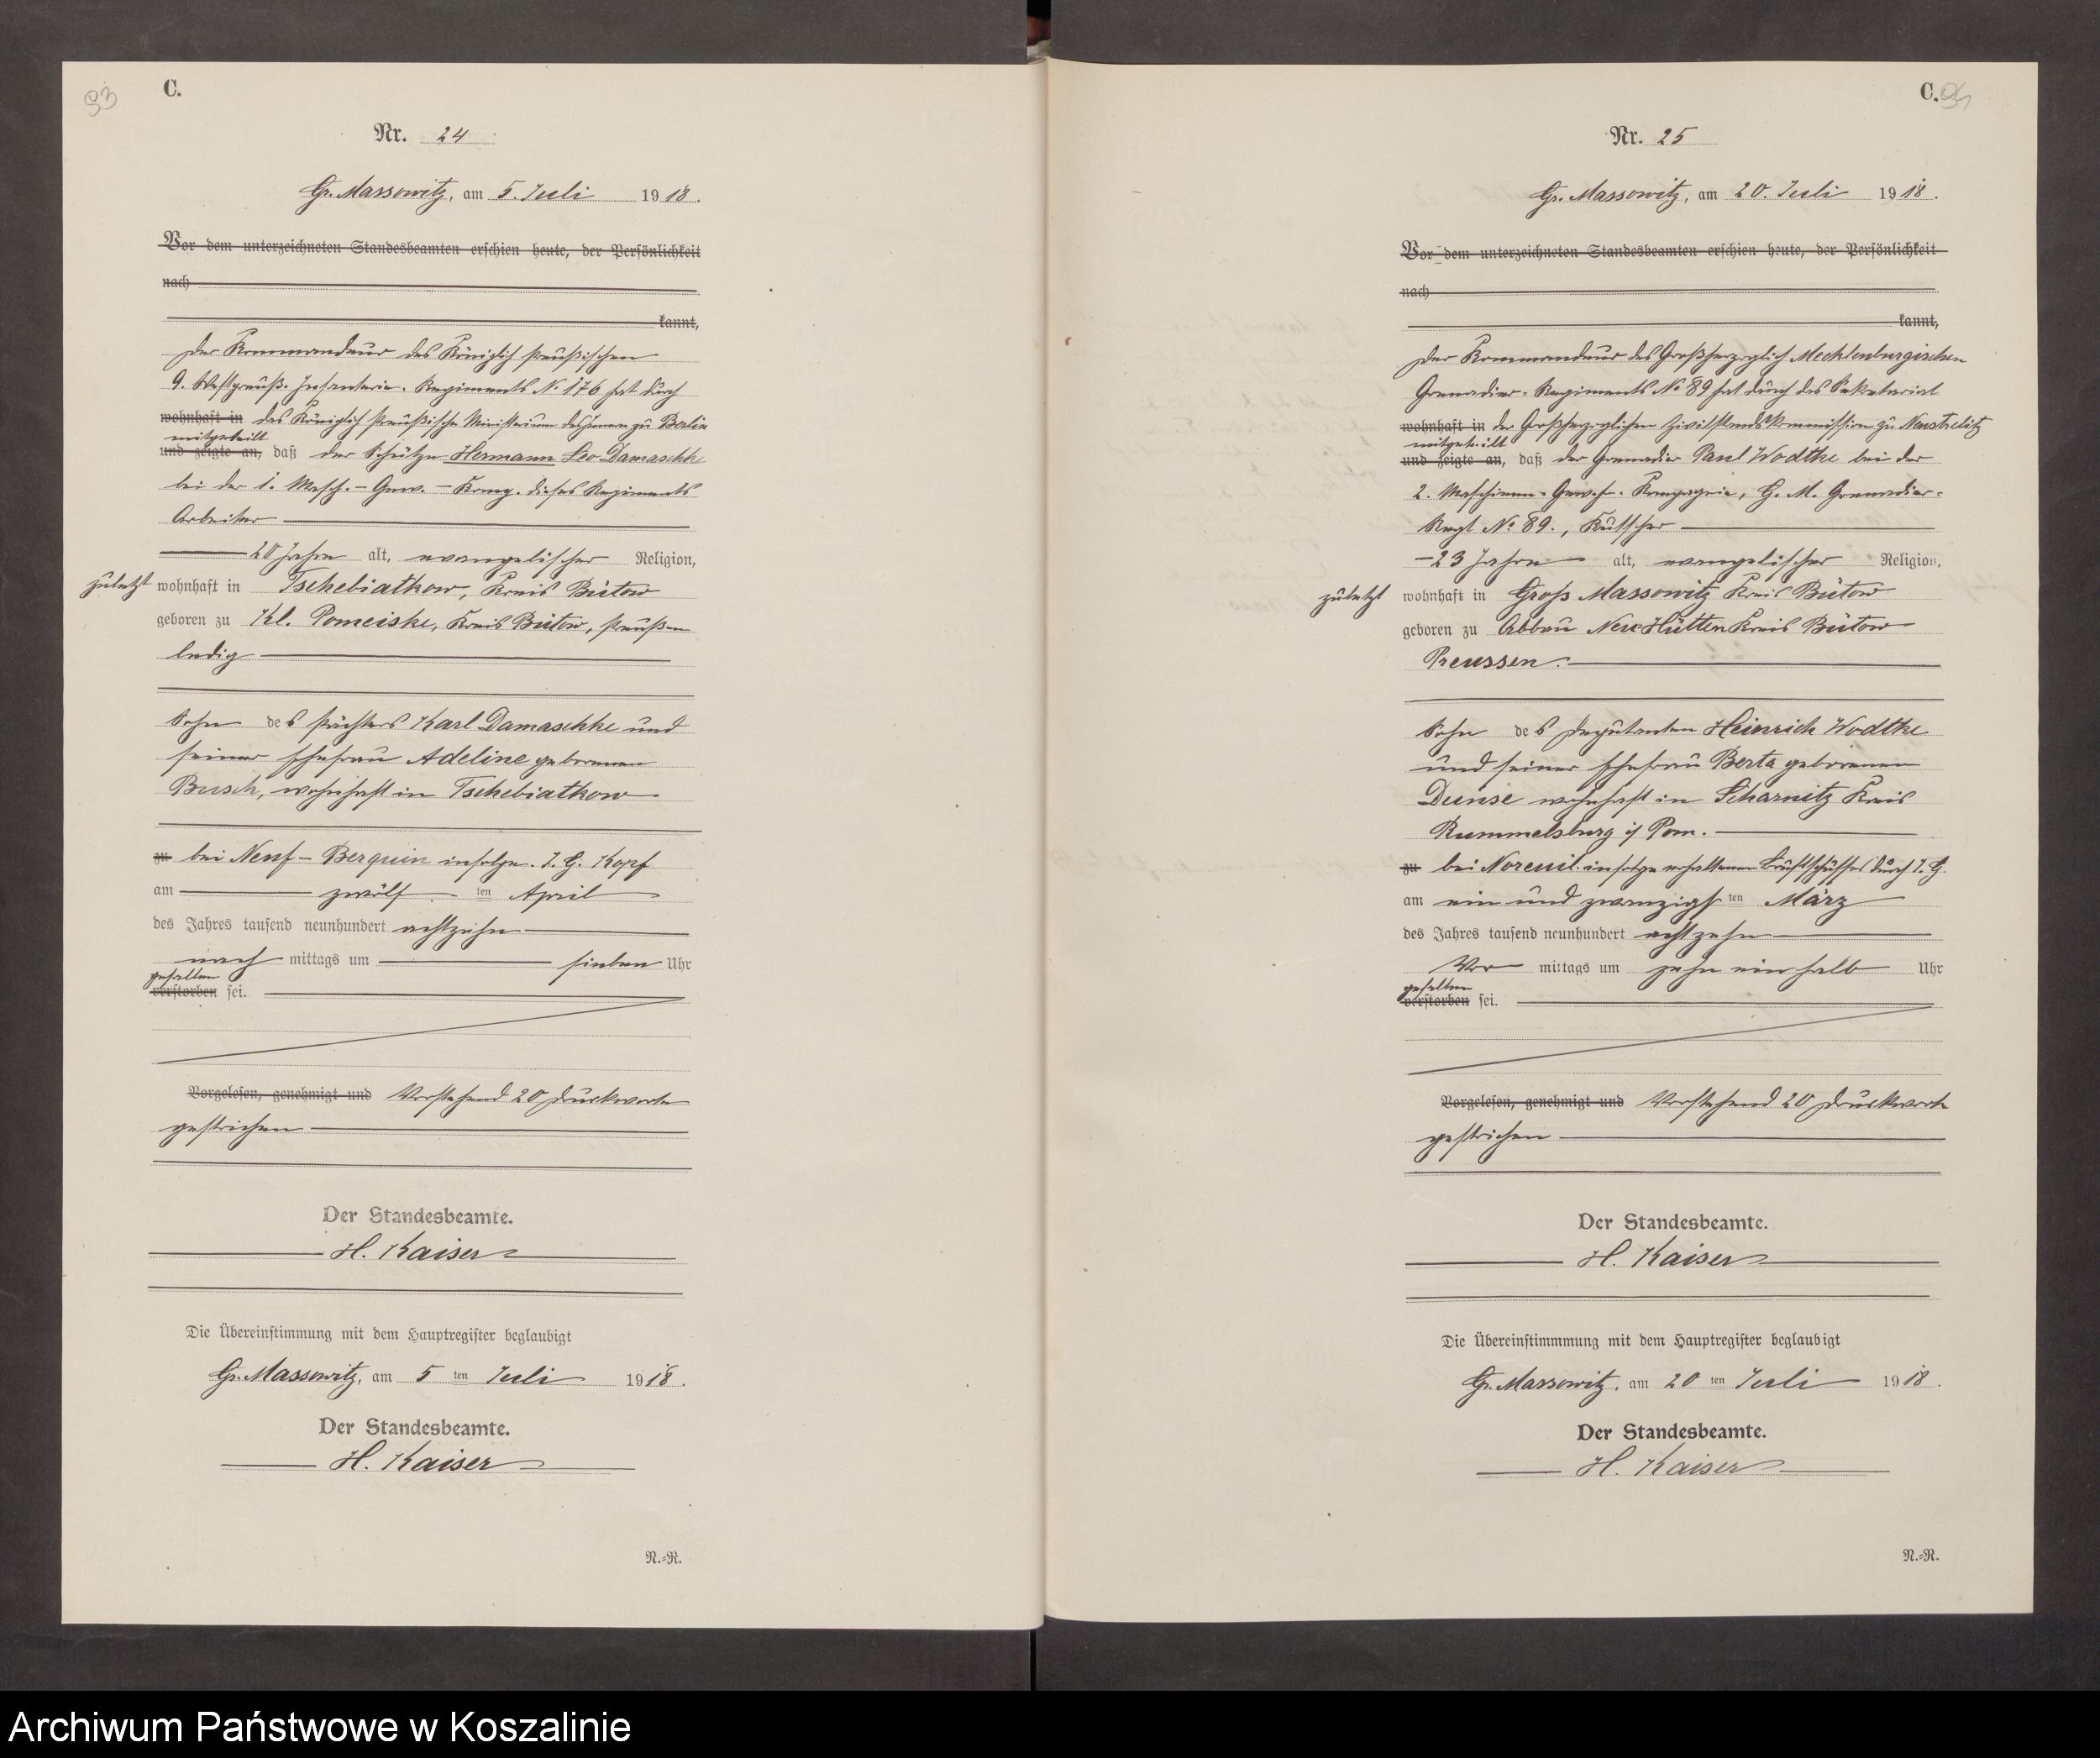 93
C.
Nr. 24
Gr. Massowitz, am 5. Juli 1918.
Vor dem unterzeichneten Standesbeamten erschien heute, der Persönlichkeit
nach
kannt,
Der Kommandeur des Königlich Preußischen
9. Westpreuß. Infanterie-Regiments No 176 hat durch
wohnhaft in das Königlich Preußische Ministerium des Innern zu Berlin
mitgeteilt
und zeigte an, daß der Schütze Hermann Leo Damaschke
bei der 1. Masch.-Gew.-Komp. dieses Regiments
Arbeiter
20 Jahre alt, evangelischer Religion,
zuletzt wohnhaft in Tschebiatkow, Kreis Bütow
geboren zu Kl. Pomeiske, Kreis Bütow, Preußen
ledig
Sohn des Pächters Karl Damaschke und
seiner Ehefrau Adeline geborenen
Busch, wohnhaft in Tschebiatkow
zu bei Neuf-Berquin infolge J. G. Kopf
am zwölf ten April
des Jahres tausend neunhundert achtzehn
nach mittags um sieben Uhr
gefallen
verstorben sei.
Vorgelesen, genehmigt und Vorstehend 20 Druckworte
gestrichen
Der Standesbeamte.
H. Kaiser
Die Übereinstimmung mit dem Hauptregister beglaubigt
Gr. Massowitz, am 5 ten Juli 1918.
Der Standesbeamte.
H. Kaiser
N.-R.
C. 94
Nr. 25
Gr. Massowitz, am 20. Juli 1918.
Vor dem unterzeichneten Standesbeamten erschien heute, der Persönlichkeit
nach
kannt,
Der Kommandeur des Großherzoglich Mecklenburgischen
Grenadier-Regiments No 89 hat durch das Sekretariat
wohnhaft in der Großherzoglichen Zivilstandskommission zu Neustrelitz
mitgeteilt
und zeigte an, daß der Grenadier Paul Wodtke bei der
2. Maschinen-Gewehr-Kompagnie, G. M. Grenadier-
Regt No 89., Kutscher
23 Jahre alt, evangelischer Religion,
zuletzt wohnhaft in Gross Massowitz Kreis Bütow
geboren zu Abbau Neu Hütten Kreis Bütow
Preussen.
Sohn des Deputanten Heinrich Wodtke
und seiner Ehefrau Berta geborenen
Dunse wohnhaft in Scharnitz Kreis
Rummelsburg i/ Pom.
zu bei Noreuil infolge erhaltenen Brustschusses durch J. G.
am ein und zwanzigs ten März
des Jahres tausend neunhundert achtzehn
Vor mittags um zehn einhalb Uhr
gefallen
verstorben sei.
Vorgelesen, genehmigt und Vorstehend 20 Druckworte
gestrichen
Der Standesbeamte.
H. Kaiser
Die Übereinstimmmung mit dem Hauptregister beglaubigt
Gr. Massowitz, am 20 ten Juli 1918.
Der Standesbeamte.
H. Kaiser
N.-R.
Archiwum Państwowe w Koszalinie